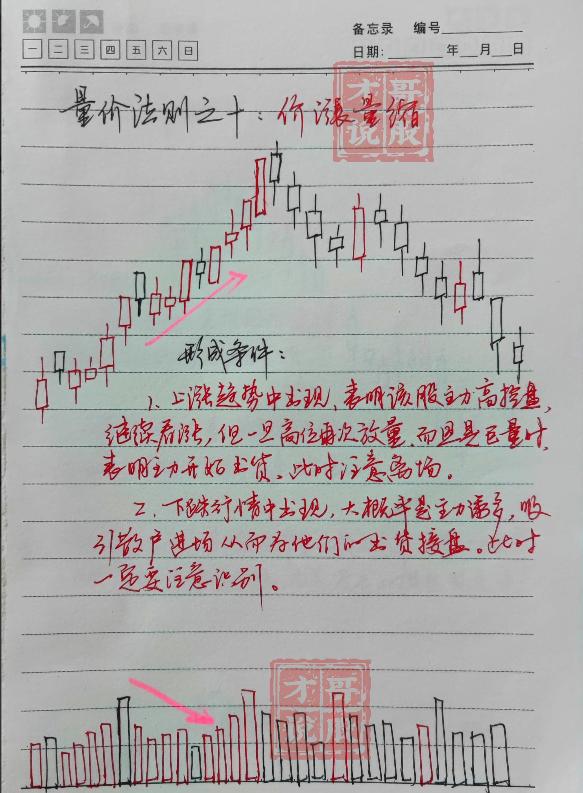 备忘录 编号
一 二 三 四 五 六 日
日期: 年 月 日
量价法则之十：价涨量缩
才哥说股
形成条件：
1、上涨趋势中出现，表明该股主力高控盘，
继续看涨，但一旦高位再次放量，而且是巨量时，
表明主力开始出货，此时注意离场。
2、下跌行情中出现，大概率是主力诱多，吸
引散户进场从而为他们的出货接盘。此时
一定要注意识别。
才哥说股